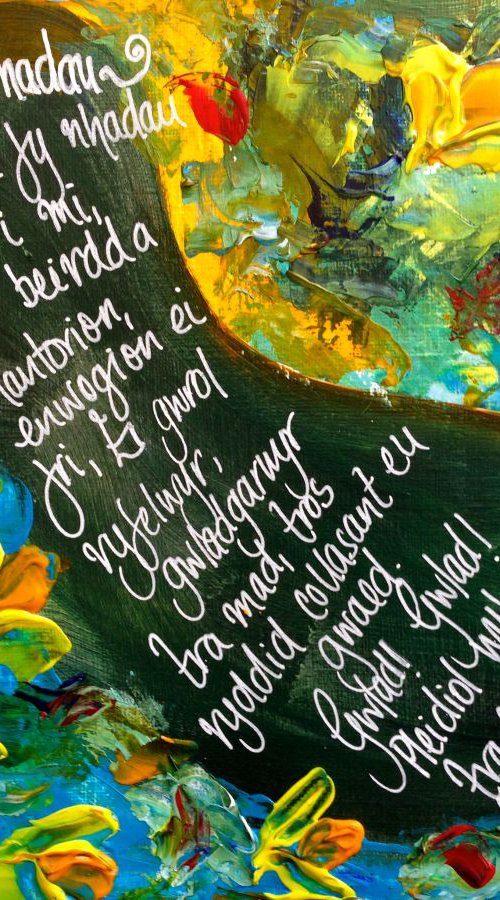 nadau
fy nhadau
i mi,
beirdd a
antorion,
enwogion ei
fri, gwrol
ryfelwyr,
gwladgarwyr
tra mad, tros
ryddid collasant eu
gwaed.
Gwlad! Gwlad!
Pleidiol